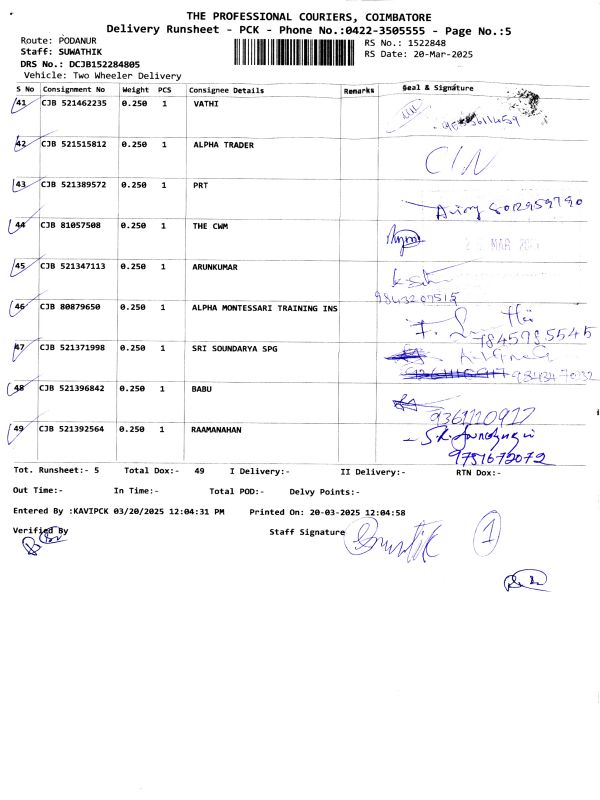 THE PROFESSIONAL COURIERS, COIMBATORE
Delivery Runsheet - PCK - Phone No.:0422-3505555 - Page No.:5
Route: PODANUR
RS No.: 1522848
Staff: SUWATHIK
RS Date: 20-Mar-2025
DRS No.: DCJB152284805
Vehicle: Two Wheeler Delivery
S No Consignment No Weight PCS Consignee Details Remarks Seal & Signature
41 CJB 521462235 0.250 1 VATHI
42 CJB 521515812 0.250 1 ALPHA TRADER
43 CJB 521389572 0.250 1 PRT
8012959790
44 CJB 81057508 0.250 1 THE CWM
MAR
45 CJB 521347113 0.250 1 ARUNKUMAR
9843207515
46 CJB 80879650 0.250 1 ALPHA MONTESSARI TRAINING INS
7845985545
47 CJB 521371998 0.250 1 SRI SOUNDARYA SPG
48 CJB 521396842 0.250 1 BABU
9361110917
49 CJB 521392564 0.250 1 RAAMANAHAN
9751672072
Tot. Runsheet:- 5 Total Dox:- 49 I Delivery:- II Delivery:- RTN Dox:-
Out Time:- In Time:- Total POD:- Delvy Points:-
Entered By :KAVIPCK 03/20/2025 12:04:31 PM Printed On: 20-03-2025 12:04:58
Verified By Staff Signature 1